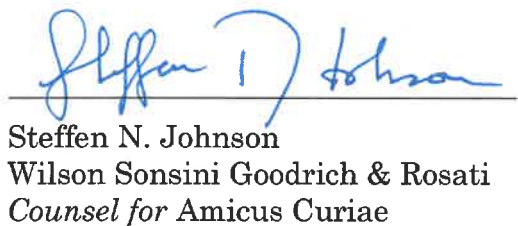 Steffen N Johnson
Steffen N. Johnson
Wilson Sonsini Goodrich & Rosati
Counsel for Amicus Curiae